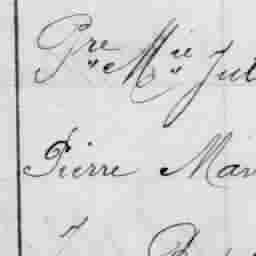 Pre Mie Jul
Pierre Mar